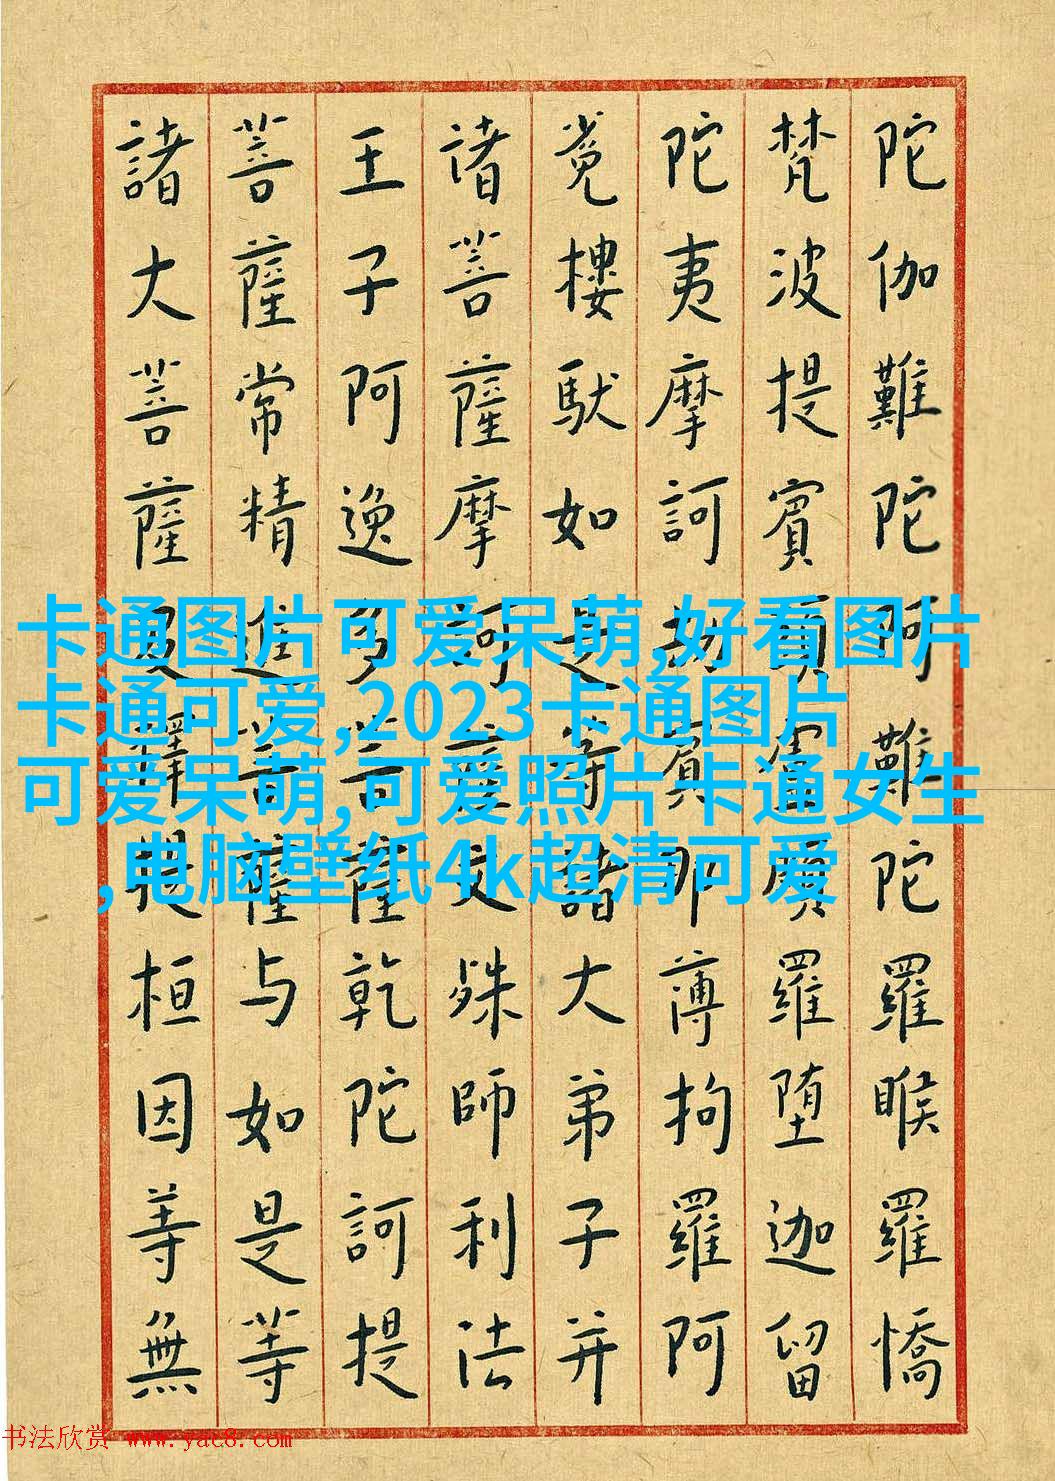 陀伽難陀阿難陀羅睺羅憍
梵波提賓頭盧頗羅堕迦留
陀夷摩訶劫賓那薄拘羅阿
㝹樓馱如是等諸大弟子并
诸菩薩摩訶薩文殊師利法
王子阿逸多菩薩乾陀訶提
菩薩常精進菩薩与如是等
諸大菩薩及釋提桓因等無
卡通图片可爱呆萌,好看图片
卡通可爱,2023卡通图片
可爱呆萌,可爱照片卡通女生
,电脑壁纸4k超清可爱
书法欣赏 www.yac8.com